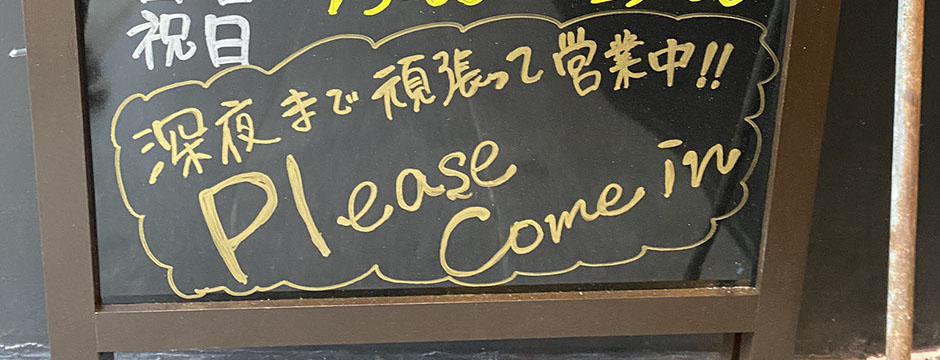 祝日
深夜まで頑張って営業中!!
Please
Come in